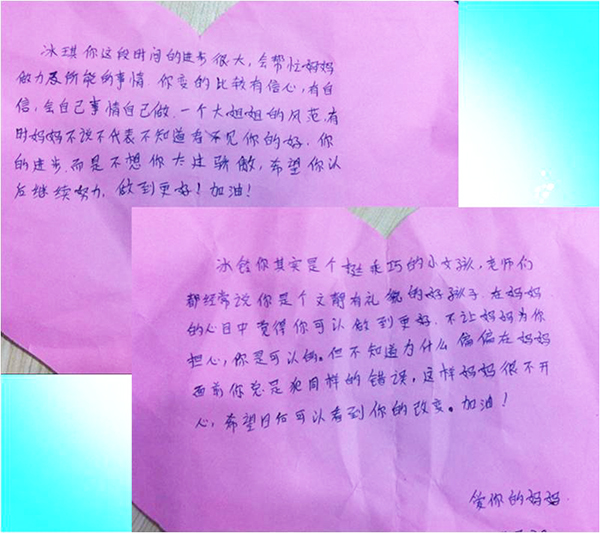 冰琪你这段时间的进步很大，会帮忙妈妈
做力忍所能的事情．你变的比较有信心，有自
信，会自己事情自己做．一个大姐姐的风范，有
时妈妈不说不代表不知道看不见你的好．你
的进步．而是不想你太过骄傲，希望你认
后继续努力，做到更好！加油！
冰铃你其实是个挺乖巧的小女孩，老师们
都经常说你是个文静有礼貌的好孩子．在妈妈
的心目中觉得你可以做到更好．不让妈妈为你
担心，你是可以的，但不知道为什么偏偏在妈妈
面前你总是犯同样的错误，这样妈妈很不开
心，希望日后可以看到你的改变。加油！
爱你的妈妈